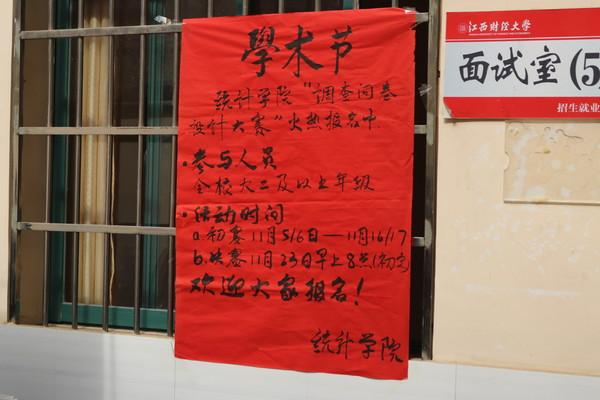 學术节
統计学院“调查问卷
設计大赛”火热报名中
·参与人员
全校大二及以上年级
·活动时间
a.初赛11月5/6日—11月16/17
b.决赛11月23日早上8点(初定)
欢迎大家报名!
統计学院
江西财经大学
面试室(5
招生就业